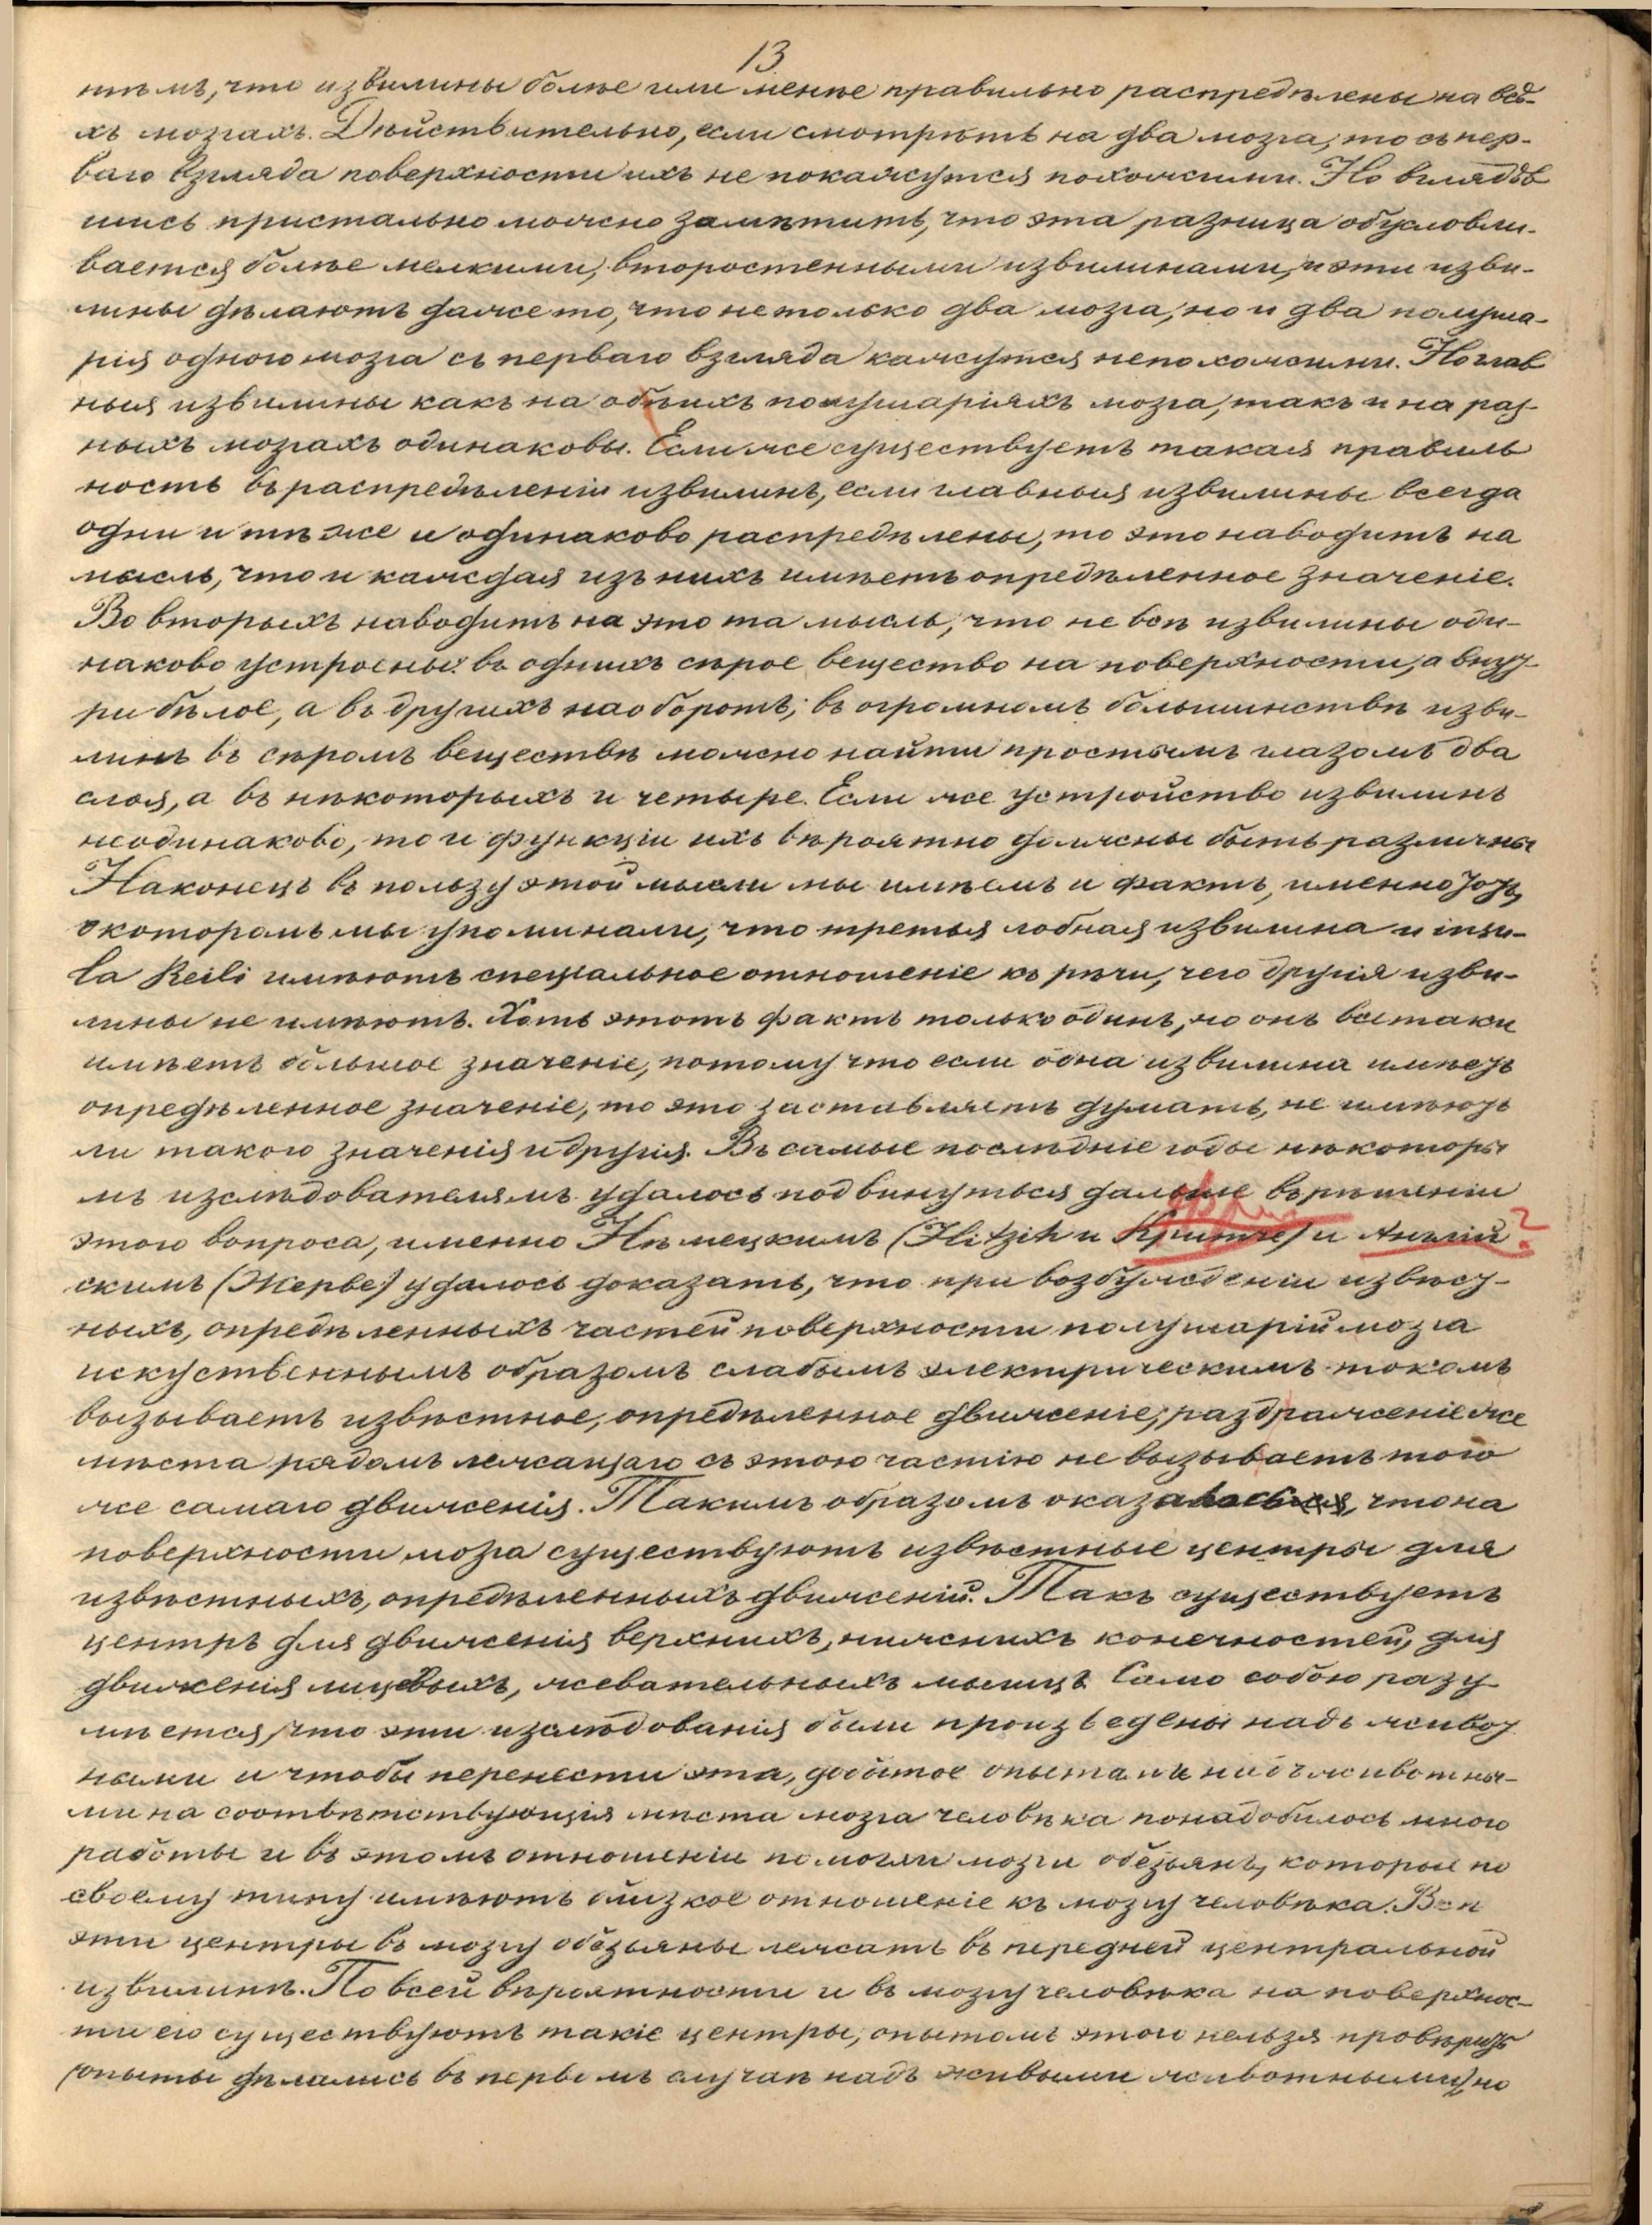 13
тѣмъ, что извилины болѣе или менѣе правильно распредѣлены на всѣ-
хъ мозгахъ. Дѣйствительно, если смотрѣть на два мозга, то съ пер-
ваго взгляда поверхности ихъ не покажутся похожими. Но вглядѣв
шись пристально можно замѣтить, что эта разница обусловли-
вается болѣе мелкими, второстенными извилинами, и эти изви-
лины дѣлаютъ даже то, что не только два мозга, но и два полуша-
рія одного мозга съ перваго взгляда кажутся непохожими. Но глав
ныя извилины какъ на обѣихъ полушаріяхъ мозга, такъ и на раз-
ныхъ мозгахъ одинаковы. Если же существуетъ такая правиль
ность въ распредѣленіи извилинъ, если главныя извилины всегда
одни и тѣ же и одинаково распредѣлены, то это наводитъ на
мысль, что и каждая изъ нихъ имѣетъ опредѣленное значеніе.
Во вторыхъ наводитъ на это та мысль, что не всѣ извилины оди-
наково устроены: въ однихъ сѣрое вещество на поверхности, а внут-
ри бѣлое, а въ другихъ наоборотъ; въ огромномъ большинствѣ изви-
линъ въ сѣромъ веществѣ можно найти простымъ глазомъ два
слоя, а въ нѣкоторыхъ и четыре. Если же устройство извилинъ
неодинаково, то и функціи ихъ вѣроятно должны быть различны
Наконецъ въ пользу этой мысли мы имѣемъ и фактъ, именно тотъ,
о которомъ мы упоминали, что третья лобная извилина и insu-
la Reili имѣютъ спеціальное отношеніе къ рѣчи, чего другія изви-
лины не имѣютъ. Хоть этотъ фактъ только одинъ, но онъ всетаки
имѣетъ большое значеніе, потому что если одна извилина имѣетъ
опредѣленное значеніе, то это заставляетъ думать, не имѣютъ
ли такого значенія и другія. Въ самые послѣдніе годы нѣкоторы
мъ изслѣдователямъ удалось подвинуться дальше въ рѣшеніи
этого вопроса, именно Нѣмецкимъ (Hitzih и Критче) и Англій ?
скимъ (Жерве) удалось доказать, что при возбужденіи извѣст-
ныхъ, опредѣленныхъ частей поверхности полушарій мозга
искуственнымъ образомъ слабымъ электрическимъ токомъ
вызываетъ извѣстное, опредѣленное движеніе; раздраженіе же
мѣста рядомъ лежащаго съ этою частію не вызываетъ того
же самаго движенія. Такимъ образомъ оказалось, что на
поверхности мозга существуютъ извѣстные центры для
извѣстныхъ, опредѣленныхъ движеній. Такъ существуетъ
центръ для движенія верхнихъ, нижнихъ конечностей, для
движенія лицевыхъ, жевательныхъ мышцъ. Само собою разу-
мѣется, что эти изслѣдованія были произведены надъ живот-
ными и чтобы перенести эта, добытое опытами надъ животны-
ми на соотвѣтствующія мѣста мозга человѣка понадобилось много
работы и въ этомъ отношеніи помогли мозги обезьянъ, которые по
своему типу имѣютъ близкое отношеніе къ мозгу человѣка. Всѣ
эти центры въ мозгу обезьяны лежатъ въ передней центральной
извилинѣ. По всей вѣроятности и въ мозгу человѣка на поверхнос-
ти его существуютъ такіе центры, опытомъ этого нельзя провѣрить
(опыты дѣлались въ первомъ случаѣ надъ живыми животными) но